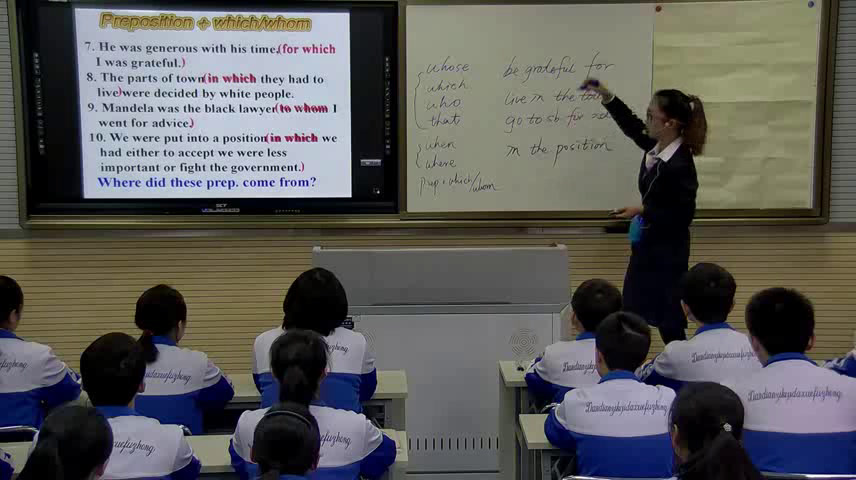 Preposition + which/whom
7. He was generous with his time,(for which
I was grateful.)
8. The parts of town(in which they had to
live)were decided by white people.
9. Mandela was the black lawyer(to whom I
went for advice.)
10. We were put into a position(in which we
had either to accept we were less
important or fight the government.)
Where did these prep. come from?
whose
which
who
that
when
where
prep + which/whom
be grateful for
live in the
go to sb for
in the position